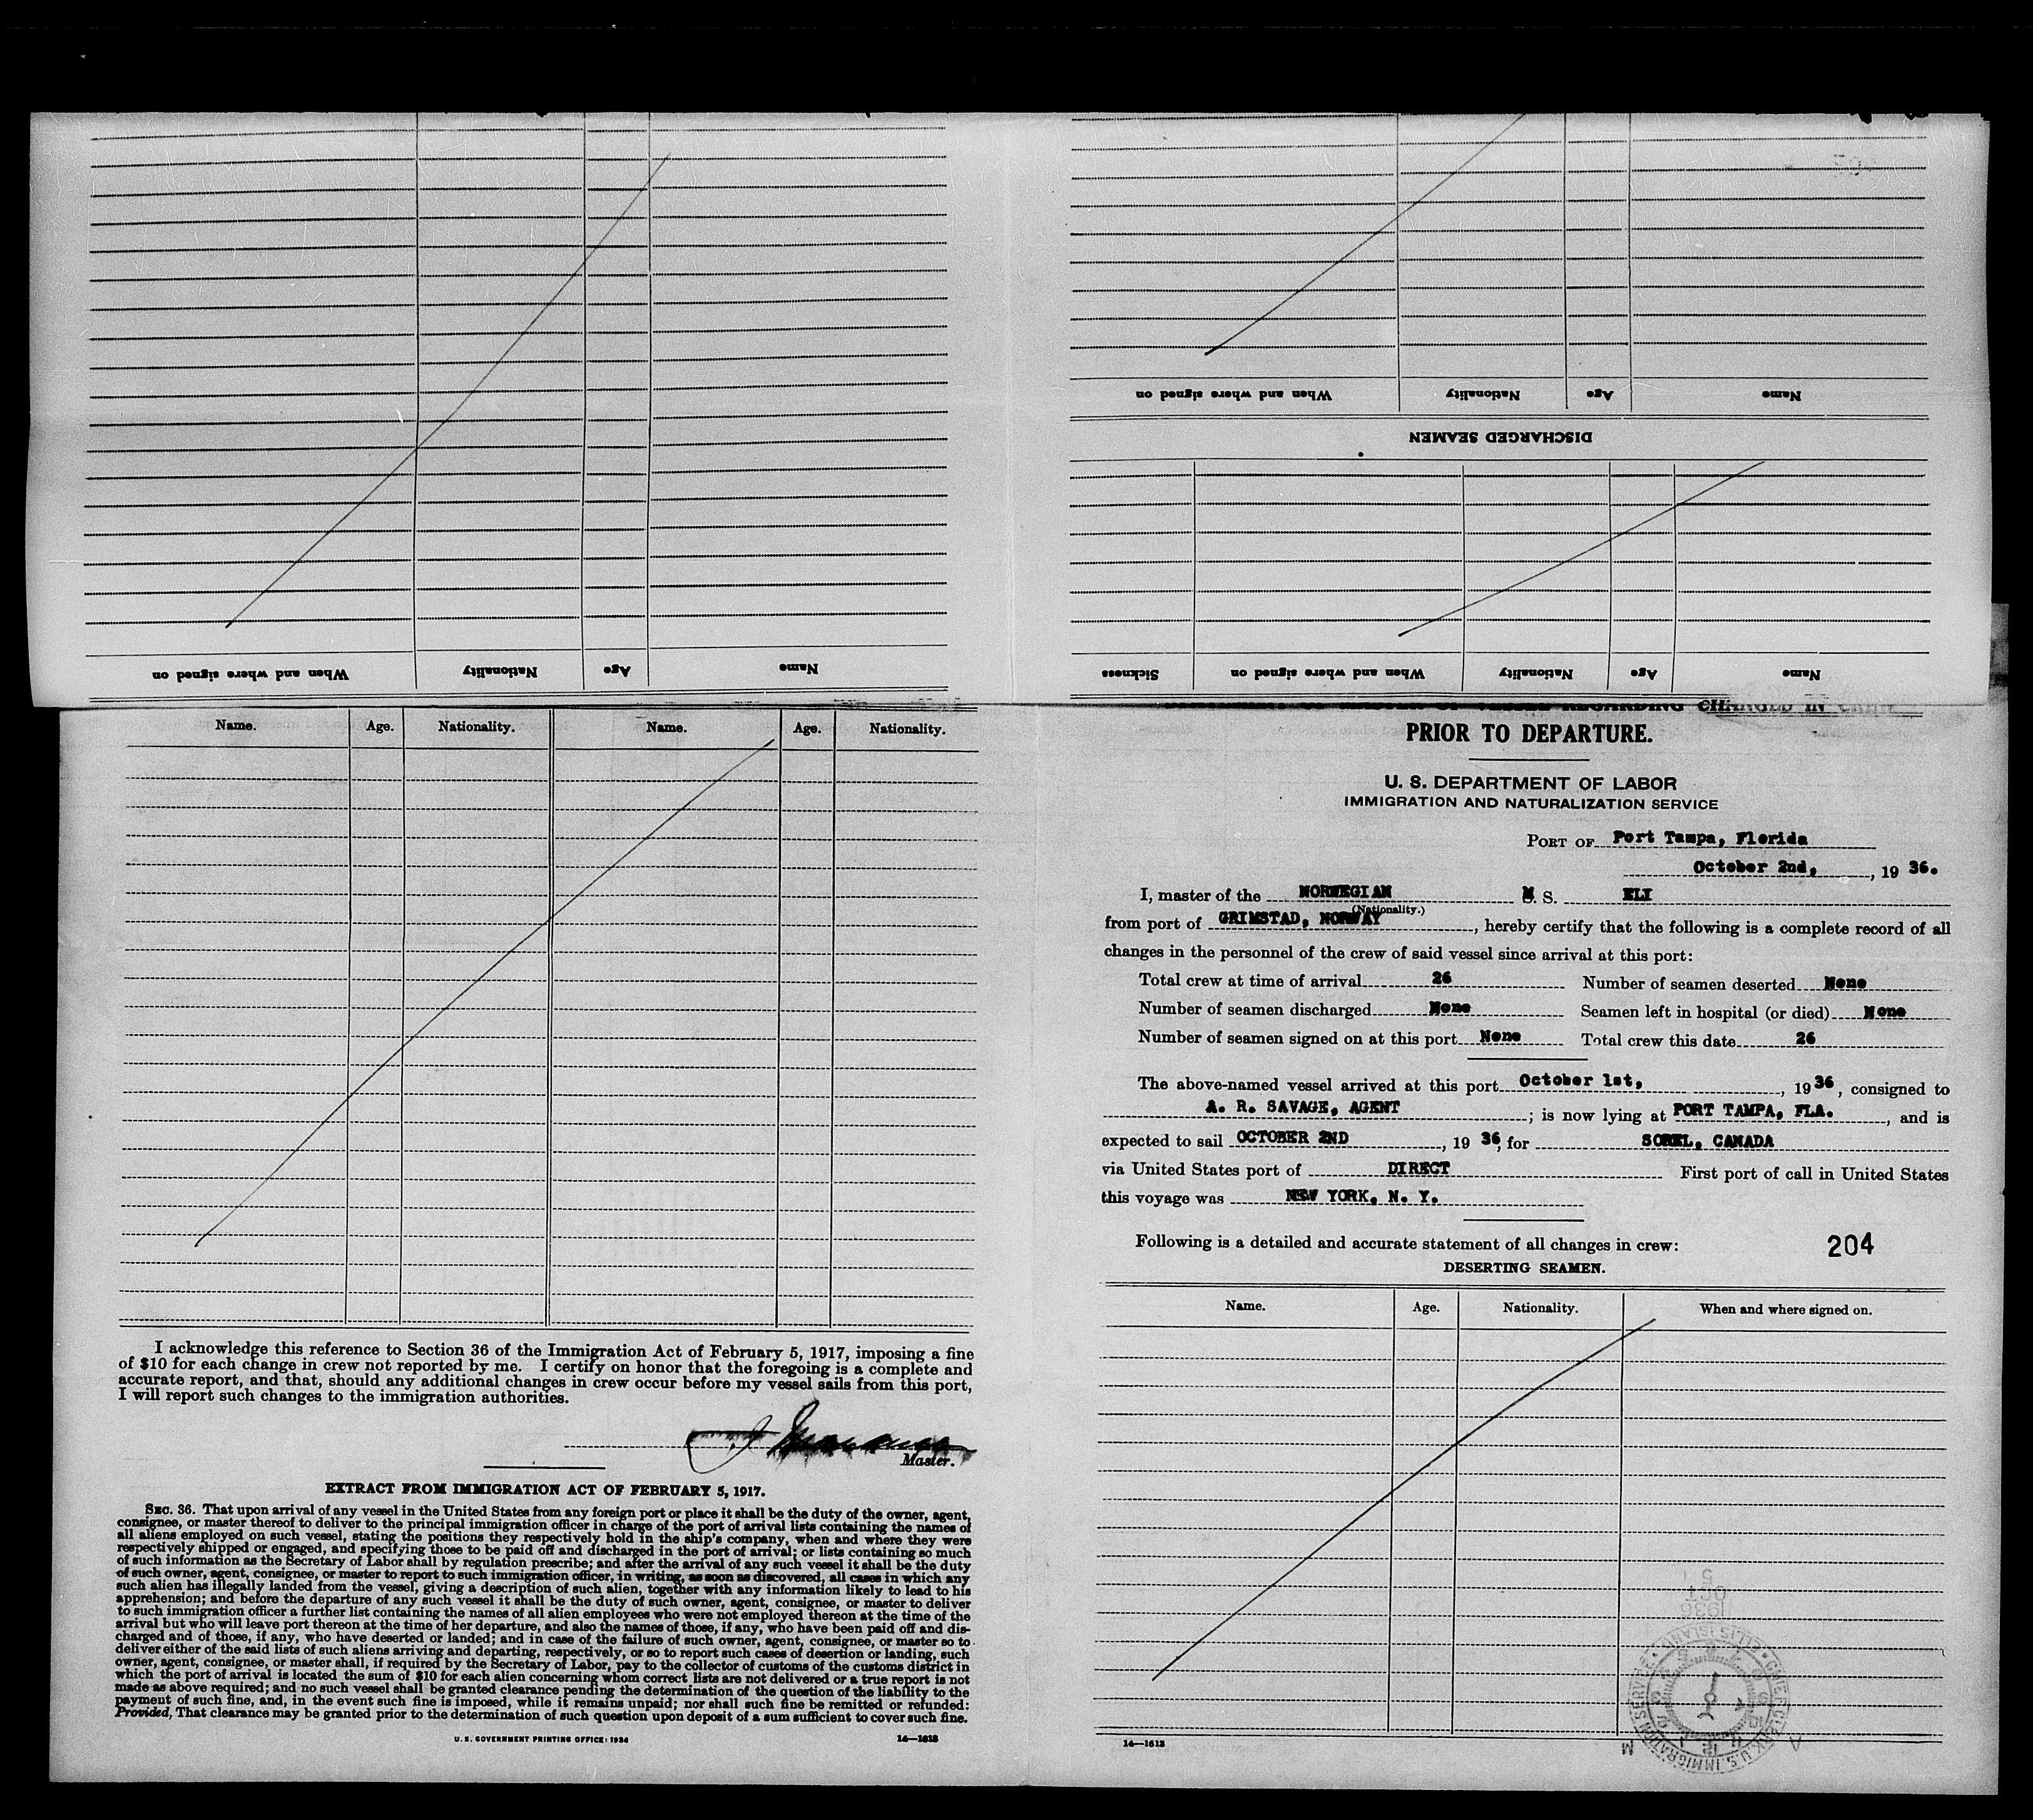 When and where signed on
Nationality
Age
Name
When and where signed on
Nationality
Age
Name
DISCHARGED SEAMEN
Sickness
When and where signed on
Nationality
Age
Name
Name.
Age.
Nationality.
Name.
Age.
Nationality.
I acknowledge this reference to Section 36 of the Immigration Act of February 5, 1917, imposing a fine
of $10 for each change in crew not reported by me. I certify on honor that the foregoing is a complete and
accurate report, and that, should any additional changes in crew occur before my vessel sails from this port,
I will report such changes to the immigration authorities.
Master.
EXTRACT FROM IMMIGRATION ACT OF FEBRUARY 5, 1917.
SEC. 36. That upon arrival of any vessel in the United States from any foreign port or place it shall be the duty of the owner, agent,
consignee, or master thereof to deliver to the principal immigration officer in charge of the port of arrival lists containing the names of
all aliens employed on such vessel, stating the positions they respectively hold in the ship's company, when and where they were
respectively shipped or engaged, and specifying those to be paid off and discharged in the port of arrival; or lists containing so much
of such information as the Secretary of Labor shall by regulation prescribe; and after the arrival of any such vessel it shall be the duty
of such owner, agent, consignee, or master to report to such immigration officer, in writing, as soon as discovered, all cases in which any
such alien has illegally landed from the vessel, giving a description of such alien, together with any information likely to lead to his
apprehension; and before the departure of any such vessel it shall be the duty of such owner, agent, consignee, or master to deliver
to such immigration officer a further list containing the names of all alien employees who were not employed thereon at the time of the
arrival but who will leave port thereon at the time of her departure, and also the names of those, if any, who have been paid off and dis-
charged and of those, if any, who have deserted or landed; and in case of the failure of such owner, agent, consignee, or master so to
deliver either of the said lists of such aliens arriving and departing, respectively, or so to report such cases of desertion or landing, such
owner, agent, consignee, or master shall, if required by the Secretary of Labor, pay to the collector of customs of the customs district in
which the port of arrival is located the sum of $10 for each alien concerning whom correct lists are not delivered or a true report is not
made as above required; and no such vessel shall be granted clearance pending the determination of the question of the liability to the
payment of such fine, and, in the event such fine is imposed, while it remains unpaid; nor shall such fine be remitted or refunded:
Provided, That clearance may be granted prior to the determination of such question upon deposit of a sum sufficient to cover such fine.
U. S. GOVERNMENT PRINTING OFFICE: 1934 14—1613
REGARDING CHANGES IN CREW
PRIOR TO DEPARTURE.
U. S. DEPARTMENT OF LABOR
IMMIGRATION AND NATURALIZATION SERVICE
PORT OF Port Tampa, Florida
October 2nd, , 19 36.
I, master of the NORWEGIAN M S. ELI
(Nationality.)
from port of GRIMSTAD, NORWAY , hereby certify that the following is a complete record of all
changes in the personnel of the crew of said vessel since arrival at this port:
Total crew at time of arrival 26 Number of seamen deserted None
Number of seamen discharged None Seamen left in hospital (or died) None
Number of seamen signed on at this port None Total crew this date 26
The above-named vessel arrived at this port October 1st, , 19 36, consigned to
A. R. SAVAGE, AGENT ; is now lying at PORT TAMPA, FLA. , and is
expected to sail OCTOBER 2ND , 19 36, for SOREL, CANADA
via United States port of DIRECT First port of call in United States
this voyage was NEW YORK, N. Y.
Following is a detailed and accurate statement of all changes in crew:
204
DESERTING SEAMEN.
Name.
Age.
Nationality.
When and where signed on.
1936
OCT
5
CHIEF CLERK U.S. IMMIGRATION SERVICE • ELLIS ISLAND •
A M
14—1613